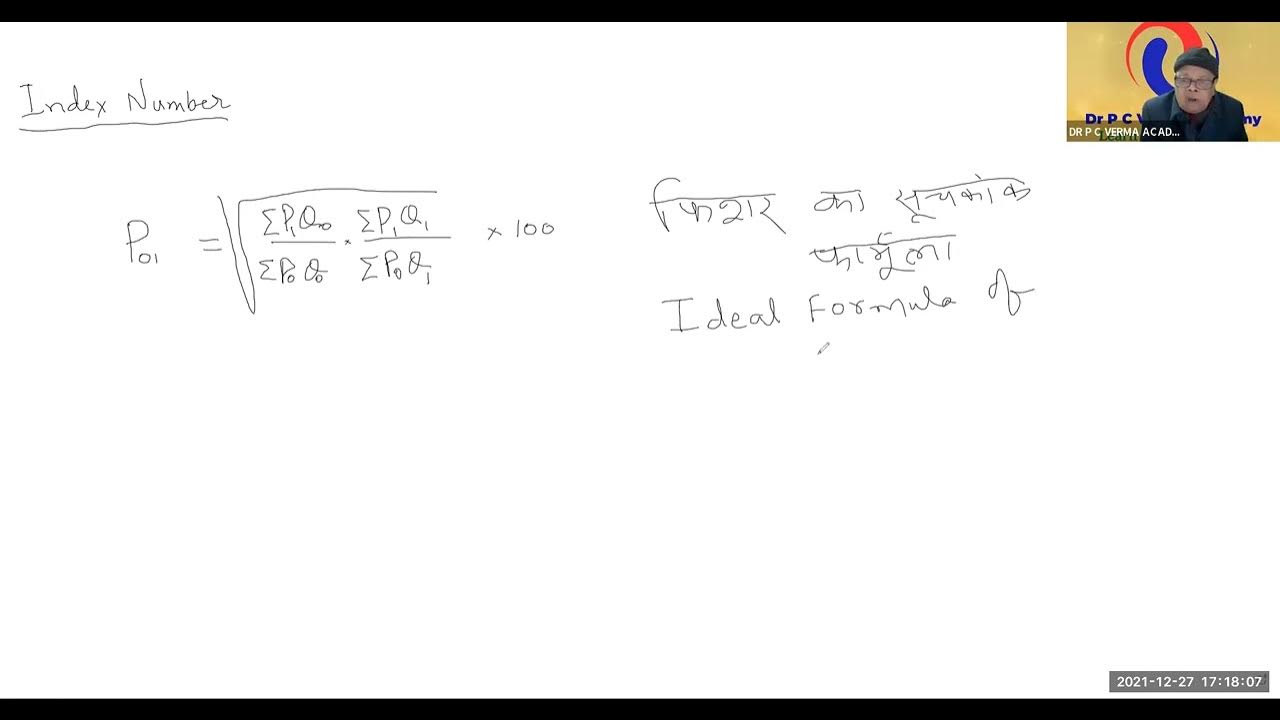 Index Number
P₀₁ = √(ΣP₁Q₀/ΣP₀Q₀ × ΣP₁Q₁/ΣP₀Q₁) × 100
फिशर का सूचकांक
फार्मूला
Ideal Formula of
Dr P C V my
DR P C VERMA ACAD...
2021-12-27 17:18:07